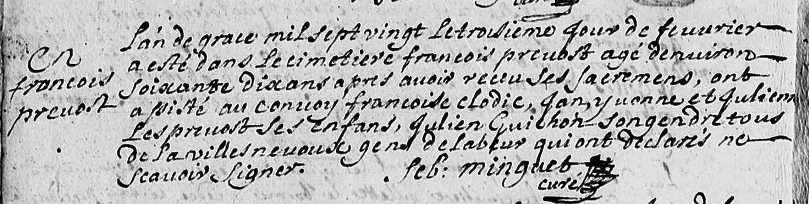 Lan de grace mil sept vingt Le troisieme jour de feuvrier
En
a esté dans Le cimetiere francois prevost agé denviron
francois
soixante dix ans apres avoir receu ses sacremens, ont
prevost
assisté au convoy francoise clodic, jan, yvonne et julienn
Les prevost ses enfans, julien Guichon son gendre tous
de la villesnevouse gens de labeur qui ont declarés ne
scavoir signer. seb: minguet
curé